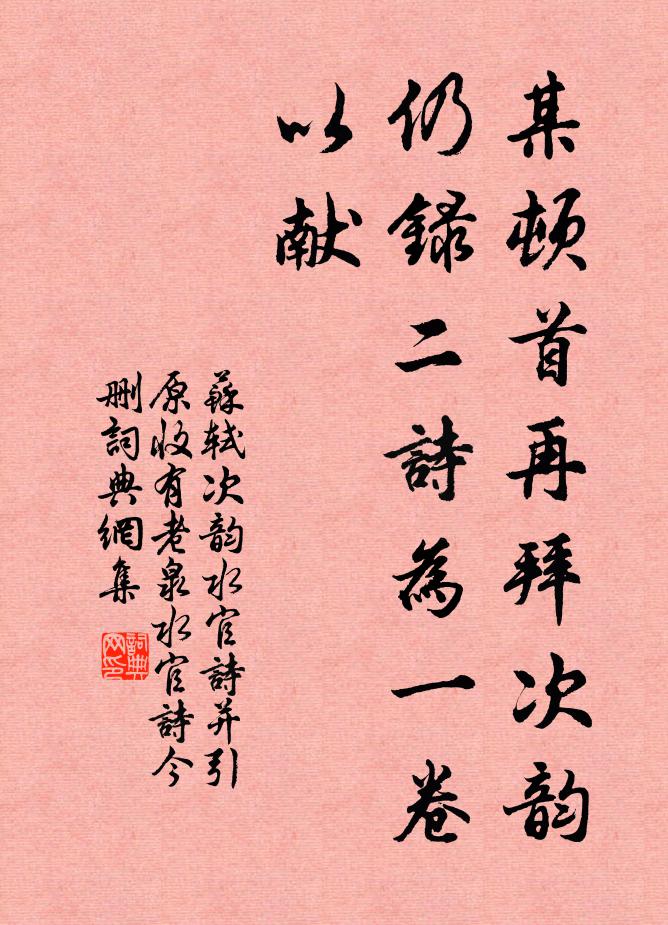 某頓首再拜次韵
仍錄二詩為一卷
以献
蘇軾次韵水官詩并引
原收有老泉水官詩今
刪詞典網集
詞典
网印